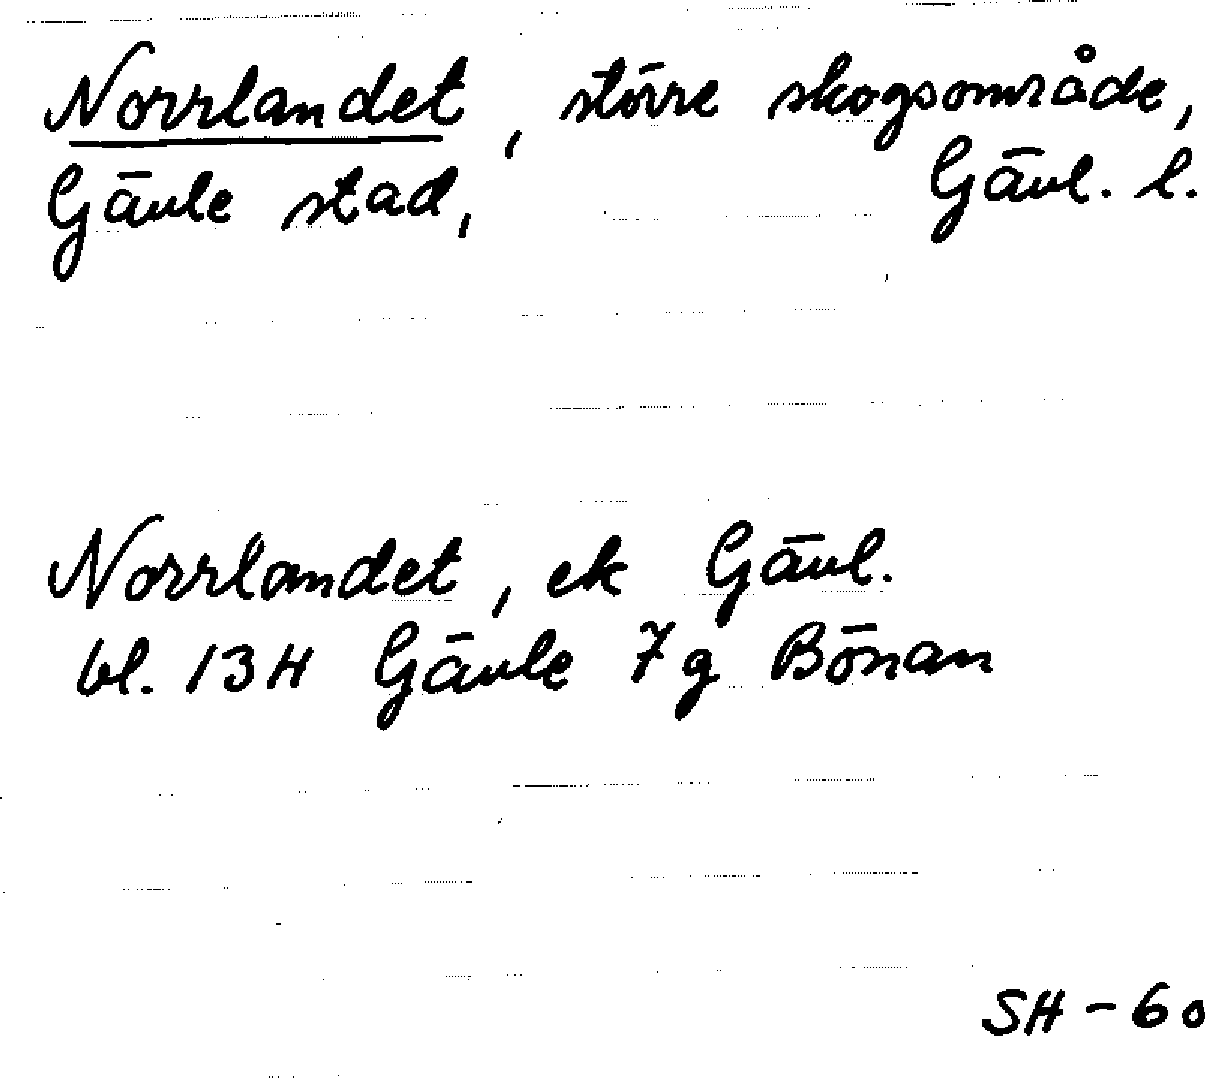 Norrlandet, större skogsområde,
Gävle stad, Gävl. l.
Norrlandet, ek Gävl.
bl. 13H Gävle 7g Bönan
SH-60